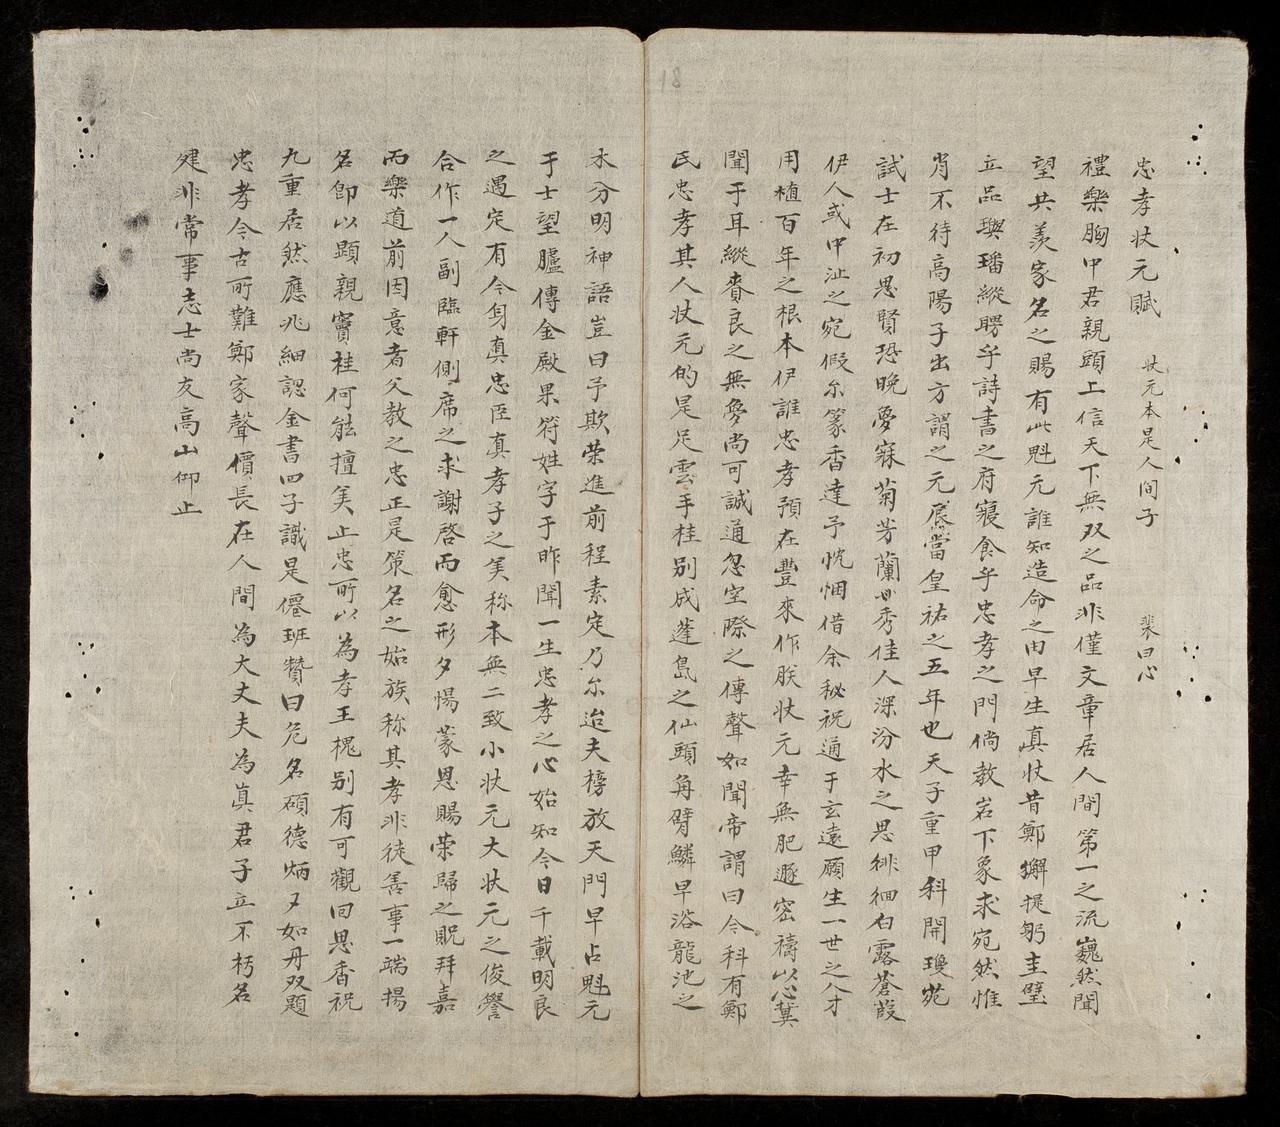 忠孝状元賦 状元本是人间子 裴曰心
禮樂胸中君親頭上信天下無双之品非僅文章居人間第一之流巍然聞
望共羨家名之賜有此魁元誰知造命之由早生真状昔鄭獬提躬圭璧
立品璵璠縱聘乎詩書之府寢食乎忠孝之門倘教岩下象求宛然惟
肖不待高陽子出方謂之元辰當皇祐之五年也天子重甲科開瓊苑
試士在初思賢恐晚夢寐菊芳蘭秀佳人深汾水之思徘徊白露蒼葭
伊人或中沚之宛假尔篆香達予忱悃借余秘祝通于玄遠願生一世之人才
用植百年之根本伊誰忠孝預在豐來作朕状元幸無肥遯密禱以心冀
聞于耳縱賚良之無夢尚可誠通忽空際之傳聲如聞帝謂曰今科有鄭
氏忠孝其人状元的是足雲手桂别成蓬島之仙頭角臂鱗早浴龍池之
水分明神語豈曰予欺荣進前程素定乃尔迨夫榜放天門早占魁元
于士望臚傳金殿果符姓字于昨聞一生忠孝之心始知今日千載明良
之遇定有今身真忠臣真孝子之美称本無二致小状元大状元之俊譽
合作一人副臨軒側席之求謝啓而愈形夕惕蒙恩賜荣歸之貺拜嘉
而樂道前因意者父教之忠正是策名之始族称其孝非徒善事一端揚
名即以顕親竇桂何能擅美止忠所以為孝王槐别有可觀囬思香祝
九重居然應兆細認金書四子識是僊班贊曰危名碩德炳又如丹双題
忠孝今古所難鄭家聲價長在人間為大丈夫為真君子立不朽名
建非常事志士尚友高山仰止
18